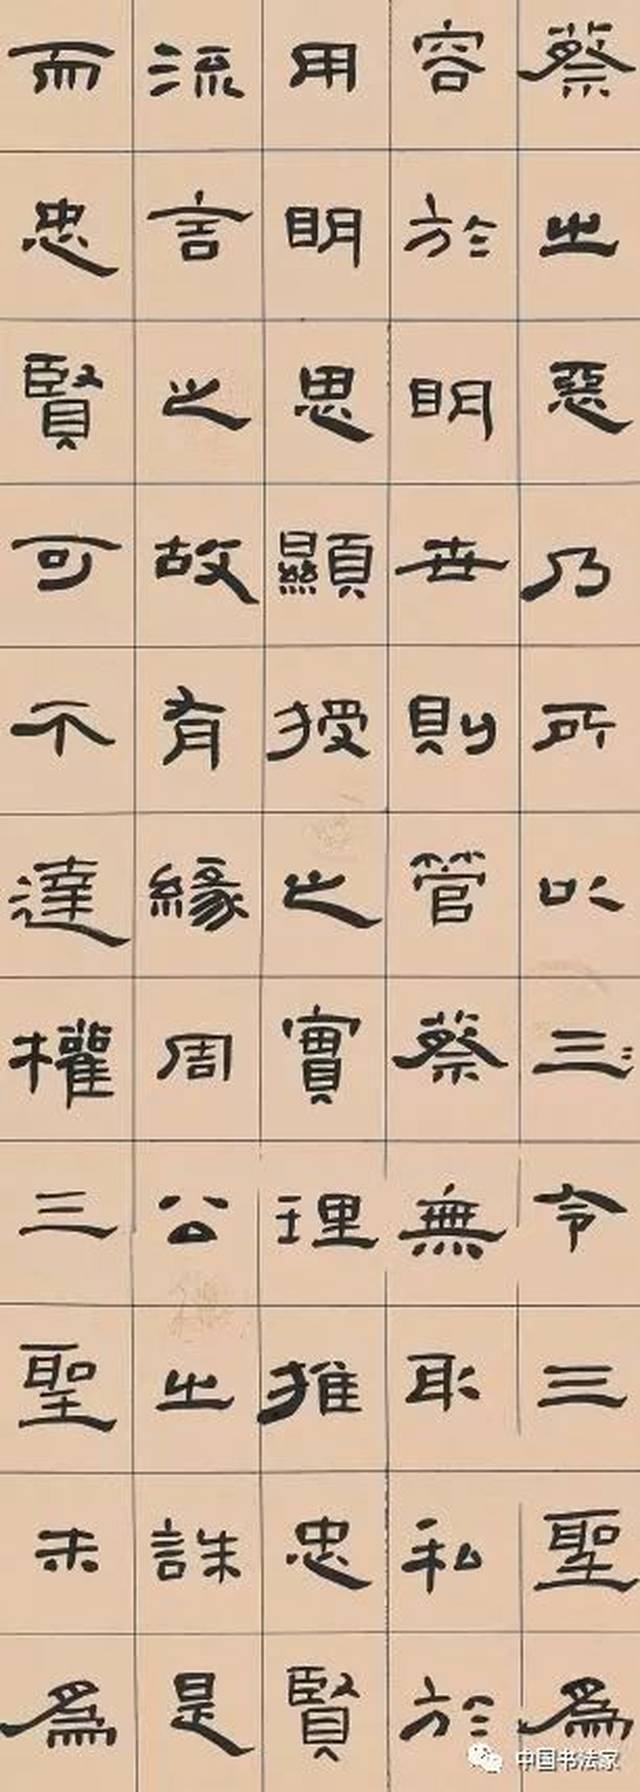 蔡之惡乃所以三〻令三聖爲
容於明世則管蔡無取私於
用明思顯授之實理推忠賢
流言之故有緣周公之誅是
而忠賢可不達權三聖未爲
中国书法家